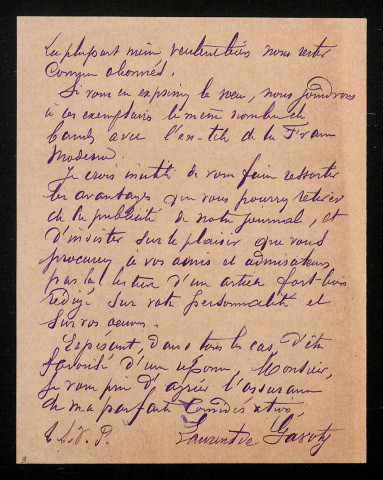 La plupart même veulent bien nous rester
comme abonnés.
Si vous en exprimez le vœu, nous joindrons
à ces exemplaires le même nombre de
bandes avec l'en-tête de la France
Moderne.
Je crois inutile de vous faire ressortir
les avantages que vous pourrez retirer
de la publicité de notre journal, et
d'insister sur le plaisir que vous
procurerez à vos amis et admirateurs
par la lecture d'un article fort bien
rédigé sur votre personnalité et
sur vos œuvres.
Espérant, dans tous les cas, d'être
favorisé d'un réponse, Monsieur,
je vous prie d'agréer l'assurance
de ma parfaite considération,
Laurent de Gavoty
T. S. V. P.
3